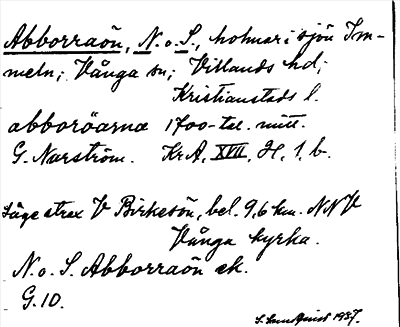 Abborraön, N. o. S., holmar i sjön Im-
meln; Vånga sn; Villands hd;
Kristianstads l.
abboröarna 1700-tal. mitt.
G. Narström. KrA, XVII, H, 1, b.
Läge strax V Birkeön, bel. 9,6 km. NNV
Vånga kyrka.
N. o. S. Abborraön ek.
G. 10.
S. Sundquist 1937.